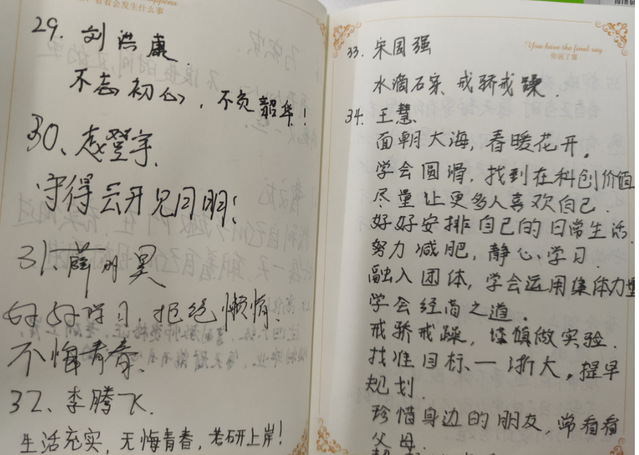 看看会发生什么事
29. 刘洪康
不忘初心，不负韶华！
30、登宇
守得云开见月明！
31. 薛明昊
好好学习，拒绝懒惰
不悔青春、
32、李腾飞.
生活充实，无悔青春，考研上岸！
You have the final say
你说了算
33. 宋国强
水滴石穿、戒骄戒躁.
34. 王慧
面朝大海，春暖花开。
学会圆滑，找到在科创价值
尽量让更多人喜欢自己.
好好安排自己的日常生活.
努力减肥，静心学习.
融入团体，学会运用集体力量
学会经商之道.
戒骄戒躁，谨慎做实验.
找准目标、一浙大，提早
规划.
珍惜身边的朋友，常看看
父母.